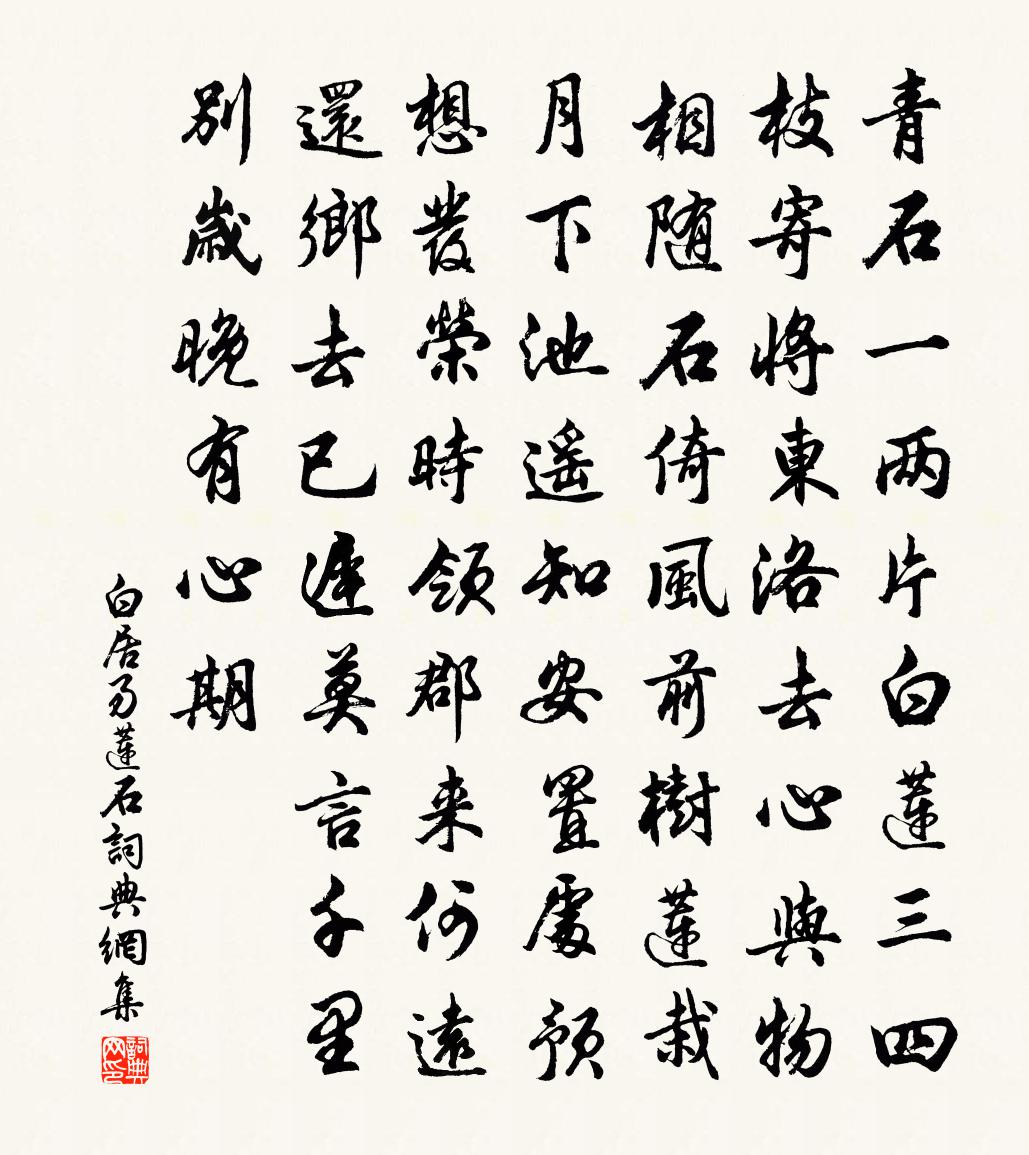 青石一两片白蓮三四
枝寄將東洛去心與物
相随石倚風前樹蓮栽
月下池遥知安置處預
想發榮時領郡来何遠
還鄉去已遲莫言千里
別歲晚有心期
白居易蓮石詞典網集
詞典网印